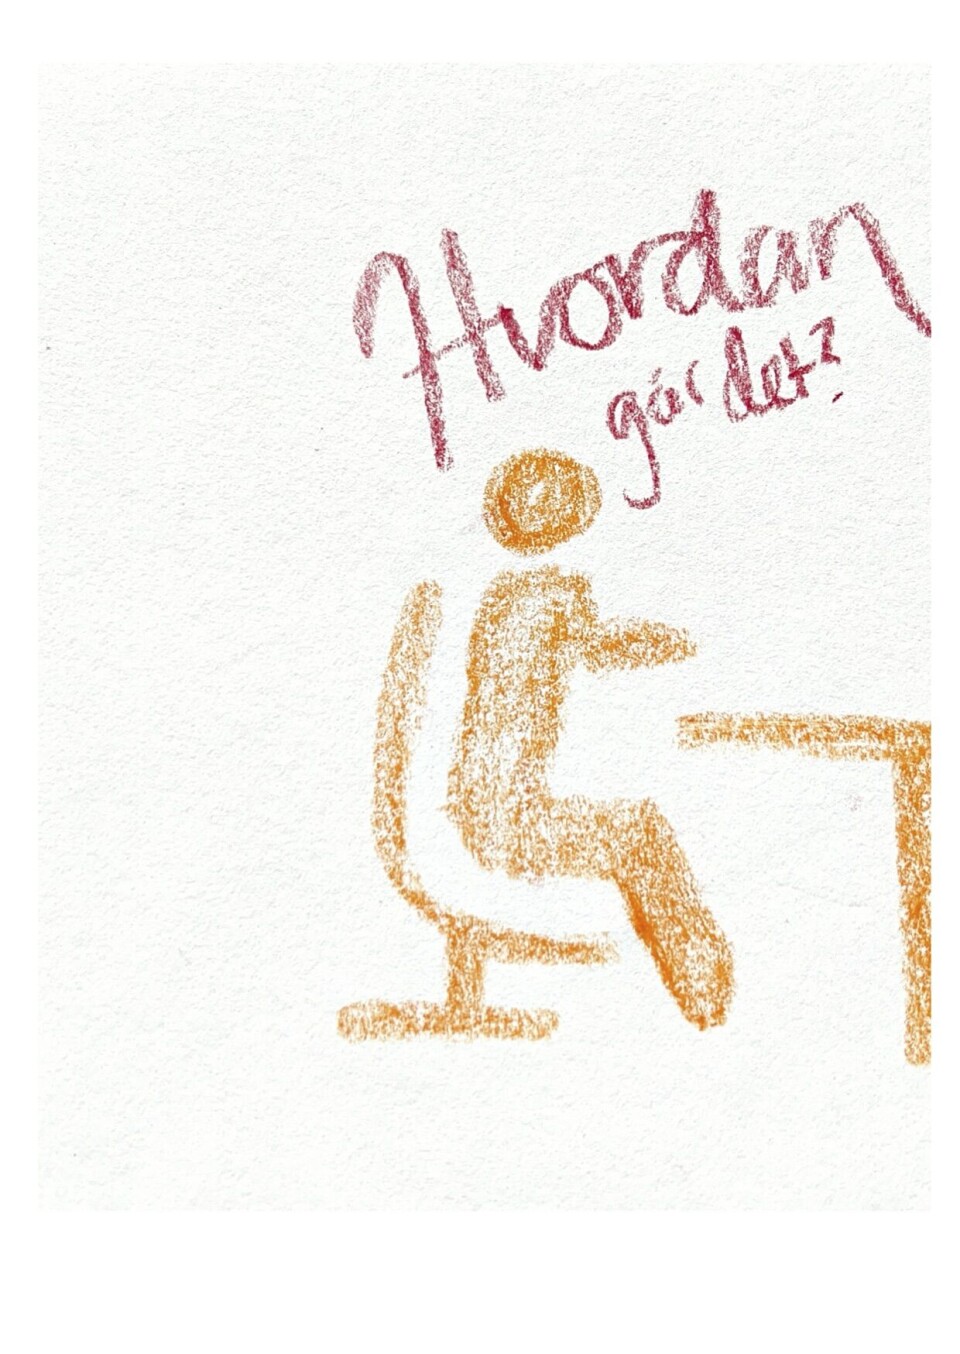 Hvordan
går det?